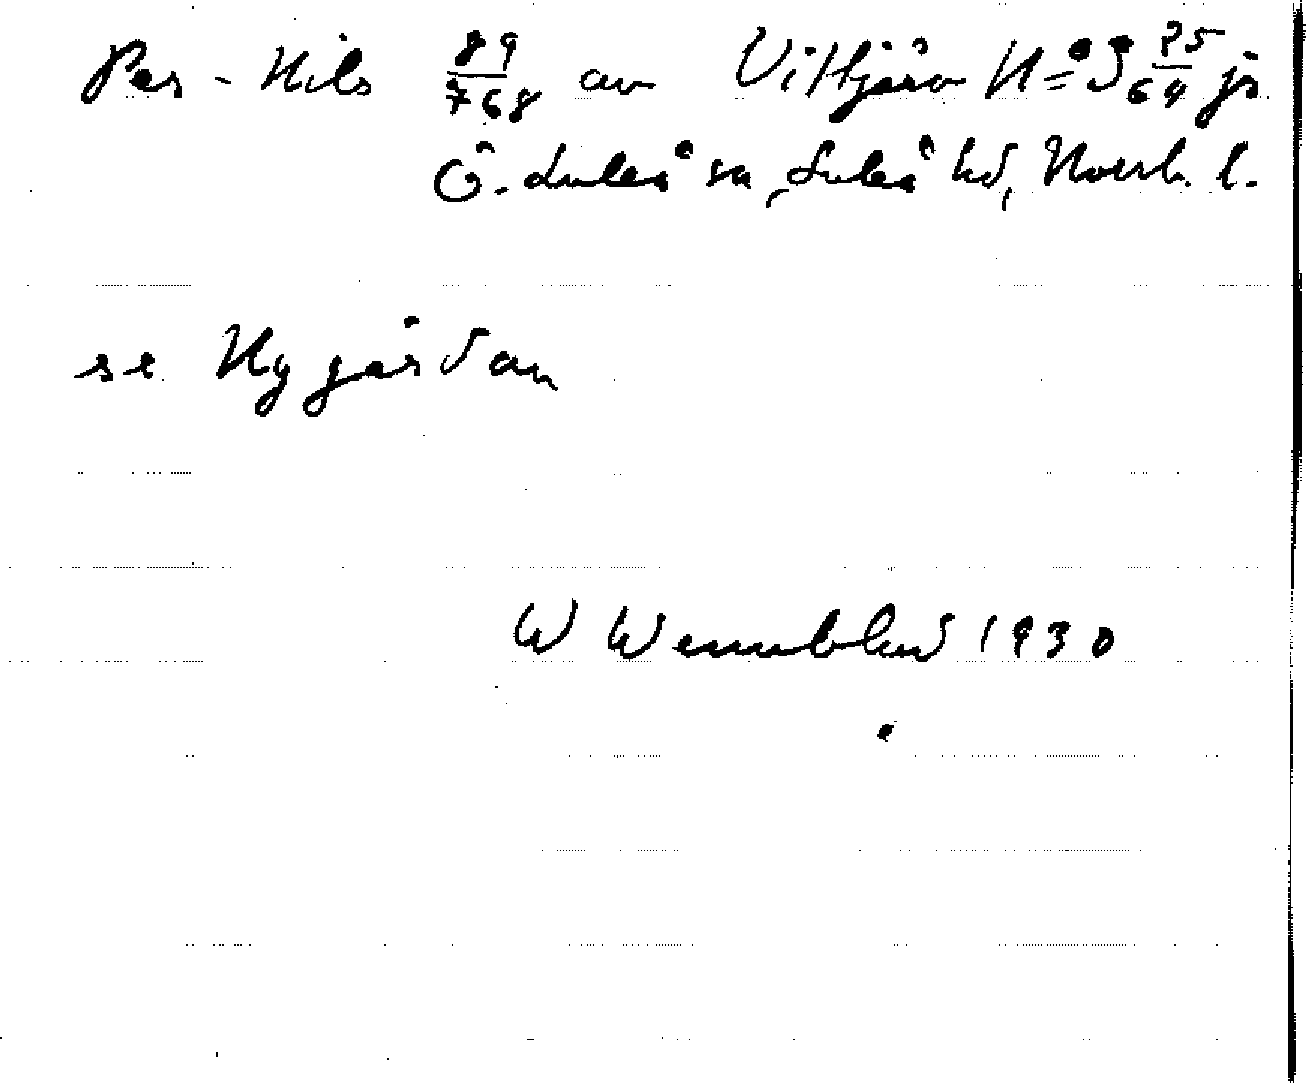 Per-Nils 89/768 av Vittjärv No 3 25/64 js
Ö. Luleå sn, Luleå hd, Norrb. l.
se Nygårdan
W Wennblad 1930